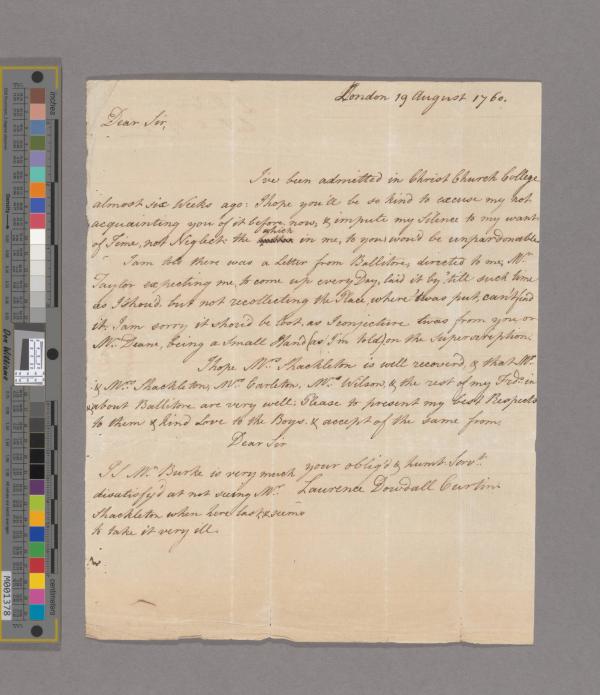 London 19 August 1760.
Dear Sir,
I've been admitted in Christ Church College
almost six Weeks ago: I hope you'll be so kind to excuse my not
acquainting you of it before now, & impute my Silence to my want
which
of Time, not Neglect: the in me, to you would be unpardonable
I am told there was a Letter from Ballitore, directed to me; Mr.
Taylor expecting me, to come up every Day, laid it by, till such time
as I shoud. but not recollecting the Place, where 'twas put, can't find
it. I am sorry it should be lost. as I conjecture twas from you or
Mr. Deane, being a Small Hand (as I'm told) on the Superscription.
I hope Mrs. Shackleton is well recoverd, & that Mr.
& Mrs. Shackleton, Mrs. Carleton, Mr. Wilson, & the rest of my Frds. in
& about Ballitore are very well. Please to present my best Respects
to them & kind Love to the Boys. & accept of the same from
Dear Sir
your oblig'd & humt. Servt.
Laurence Dowdall Curtin.
P.S. Mr. Burke is very much
disatisfy'd at not seeing Mr.
Shackleton when here last & seems
to take it very ill.
inches
centimeters
Don Williams
M001378